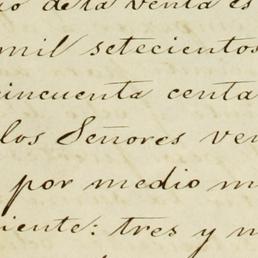 de la venta es
mil setecientos
cincuenta centa
los Señores ven
por medio m
iente: tres y m